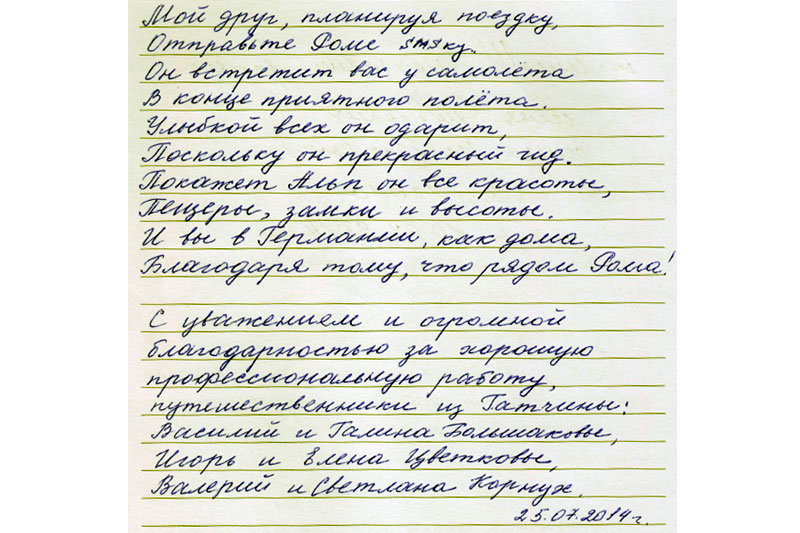 Мой друг, планируя поездку,
Отправьте Роме SMSку.
Он встретит вас у самолёта
В конце приятного полёта.
Улыбкой всех он одарит,
Поскольку он прекрасный гид.
Покажет Альп он все красоты,
Пещеры, замки и высоты.
И вы в Германии, как дома,
Благодаря тому, что рядом Рома!
С уважением и огромной
благодарностью за хорошую
профессиональную работу,
путешественники из Гатчины:
Василий и Галина Большаковы,
Игорь и Елена Цветковы,
Валерий и Светлана Корнух.
25.07.2014 г.